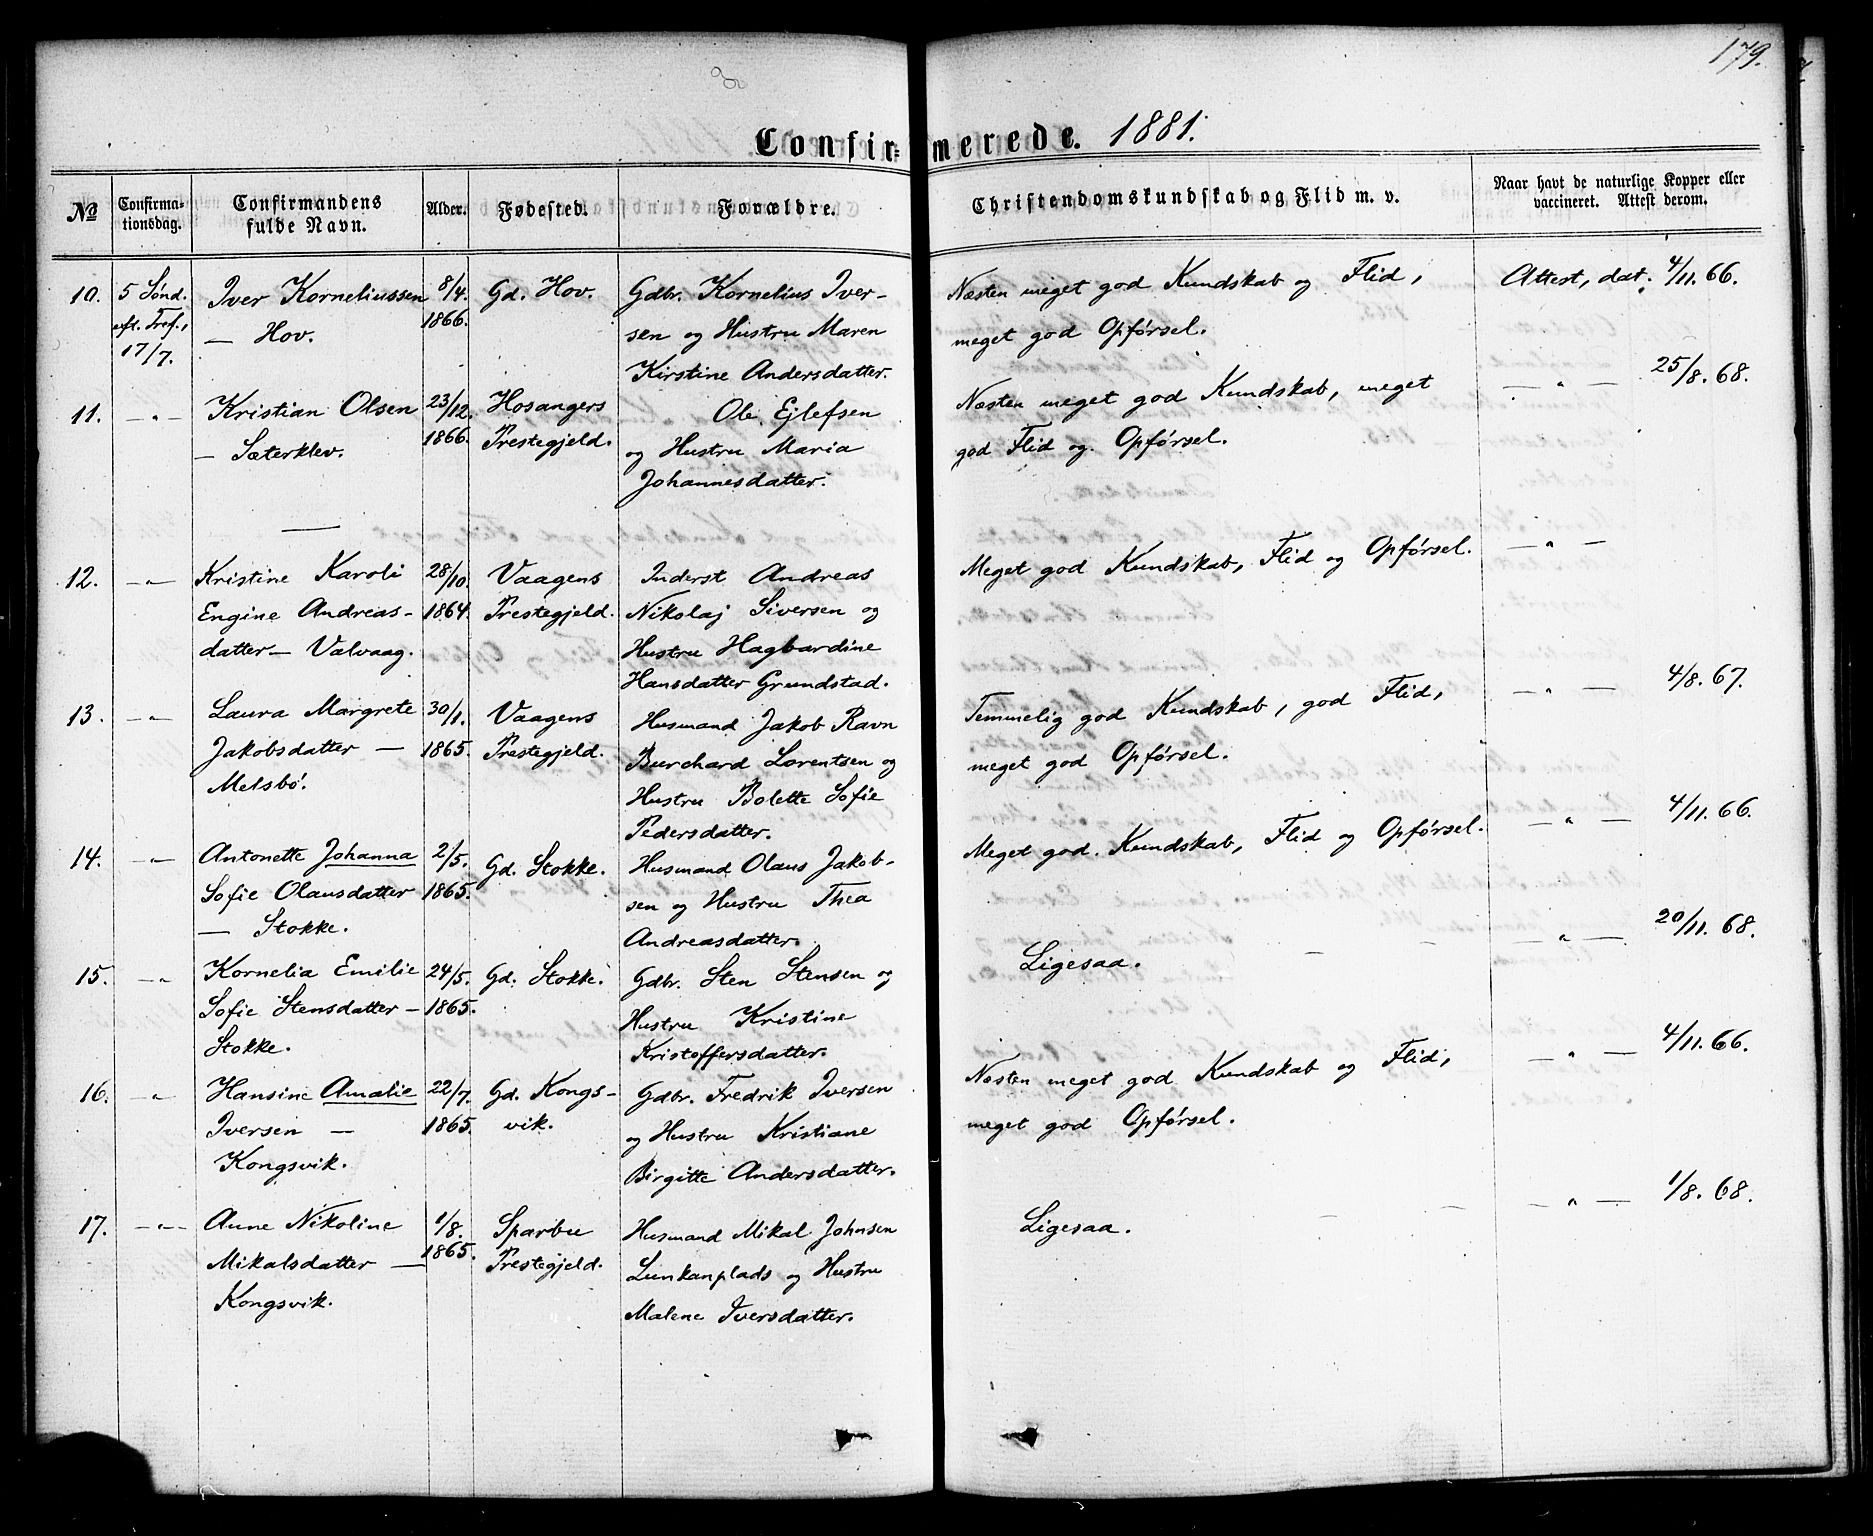 179.
Confirmerede. 1881.
No Confirmationsdag. Confirmandens fulde Navn. Alder. Fødested. Forældre. Christendomskundskab og Flid m. v. Naar havt de naturlige Kopper eller vaccineret. Attest derom.
10. 5 Sønd. Iver Korneliussen 8/4. Gd. Hov. Gdbr. Kornelius Iver- Næsten meget god Kundskab og Flid, Attest, dat. 4/11. 66.
eft. Tref., — Hov. 1866. sen og Hustru Maren meget god Opførsel.
17/7. Kirstine Andersdatter.
11. —"— Kristian Olsen 23/12. Hosangers Ole Ejlefsen Næsten meget god Kundskab, meget —"— 25/8. 68.
— Sæterklev. 1866. Prestegjeld. og Hustru Maria god Flid og Opførsel.
Johannesdatter.
—
12. —"— Kristine Karoli 28/10. Vaagens Inderst Andreas Meget god Kundskab, Flid og Opførsel. —"—
Engine Andreas- 1864. Prestegjeld. Nikolaj Siversen og
datter — Valvaag. Hustru Hagbardine
Hansdatter Grundstad.
13. —"— Laura Margrete 30/1. Vaagens Husmand Jakob Ravn Temmelig god Kundskab, god Flid, —"— 4/8. 67.
Jakobsdatter — 1865. Prestegjeld. Burchard Lorentsen og meget god Opførsel.
Melsbö. Hustru Bolette Sofie
Pedersdatter.
14. —"— Antonette Johanna 2/5. Gd. Stokke. Husmand Olaus Jakob- Meget god Kundskab, Flid og Opførsel. —"— 4/11. 66.
Sofie Olausdatter 1865. sen og Hustru Thea
— Stokke. Andreasdatter.
15. —"— Kornelia Emilie 24/5. Gd. Stokke. Gdbr. Sten Stensen og Ligesaa. — — —"— 20/11. 68.
Sofie Stensdatter — 1865. Hustru Kristine
Stokke. Kristoffersdatter.
16. —"— Hansine Amalie 22/7. Gd. Kongs- Gdbr. Fredrik Iversen Næsten meget god Kundskab og Flid, —"— 4/11. 66.
Iversen — 1865. vik. og Hustru Kristiane meget god Opførsel.
Kongsvik. Birgitte Andersdatter.
17. —"— Anne Nikoline 1/8. Sparbu Husmand Mikal Johnsen Ligesaa. — — —"— 1/8. 68.
Mikalsdatter — 1865. Prestegjeld. Lunkanplads og Hustru
Kongsvik. Malene Iversdatter.